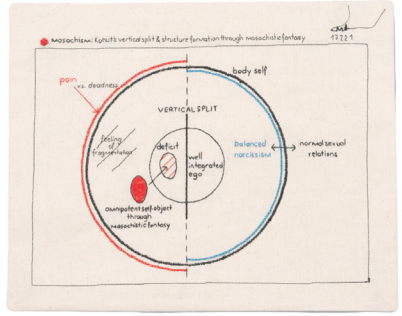 MASOCHISM: Kohut's vertical split & structure formation through masochistic fantasy
17221
pain
vs. deadness
body self
VERTICAL SPLIT
feeling
of
fragmentation
deficit
well
integrated
ego
balanced
narcissism
normal sexual
relations
omnipotent self-object
through
masochistic fantasy